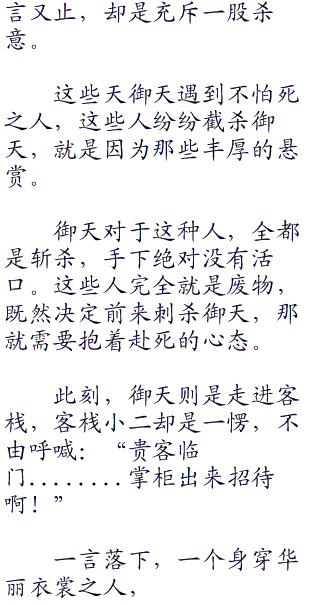 言又止，却是充斥一股杀
意。
这些天御天遇到不怕死
之人，这些人纷纷截杀御
天，就是因为那些丰厚的悬
赏。
御天对于这种人，全都
是斩杀，手下绝对没有活
口。这些人完全就是废物，
既然决定前来刺杀御天，那
就需要抱着赴死的心态。
此刻，御天则是走进客
栈，客栈小二却是一愣，不
由呼喊：“贵客临
门........掌柜出来招待
啊！”
一言落下，一个身穿华
丽衣裳之人，